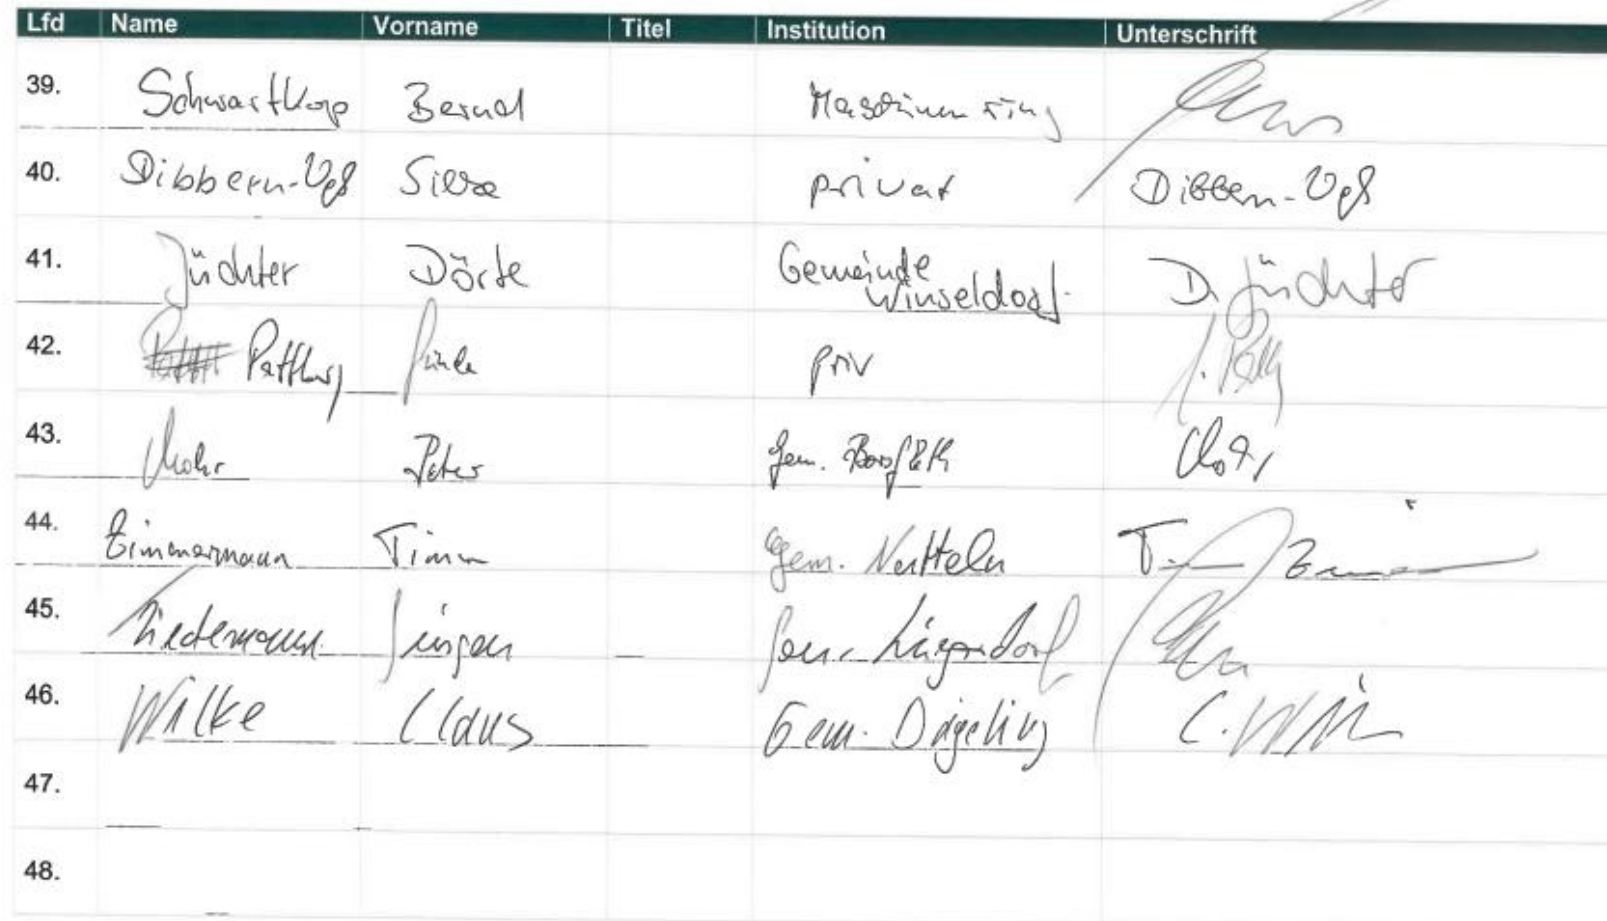 Lfd Name Vorname Titel Institution Unterschrift
39. Schwartkop Bernd Maschinenring
40. Dibbern-Voß Silke privat Dibbern-Voß
41. Jüchter Dörte Gemeinde Winseldorf D. Jüchter
42. priv
43. Mohr Peter Gem. Borsfleth Mohr
44. Zimmermann Timm Gem. Nutteln
45. Tiedemann Jürgen Gem. Lägerdorf
46. Wilke Claus Gem. Dägeling C. Wilke
47.
48.